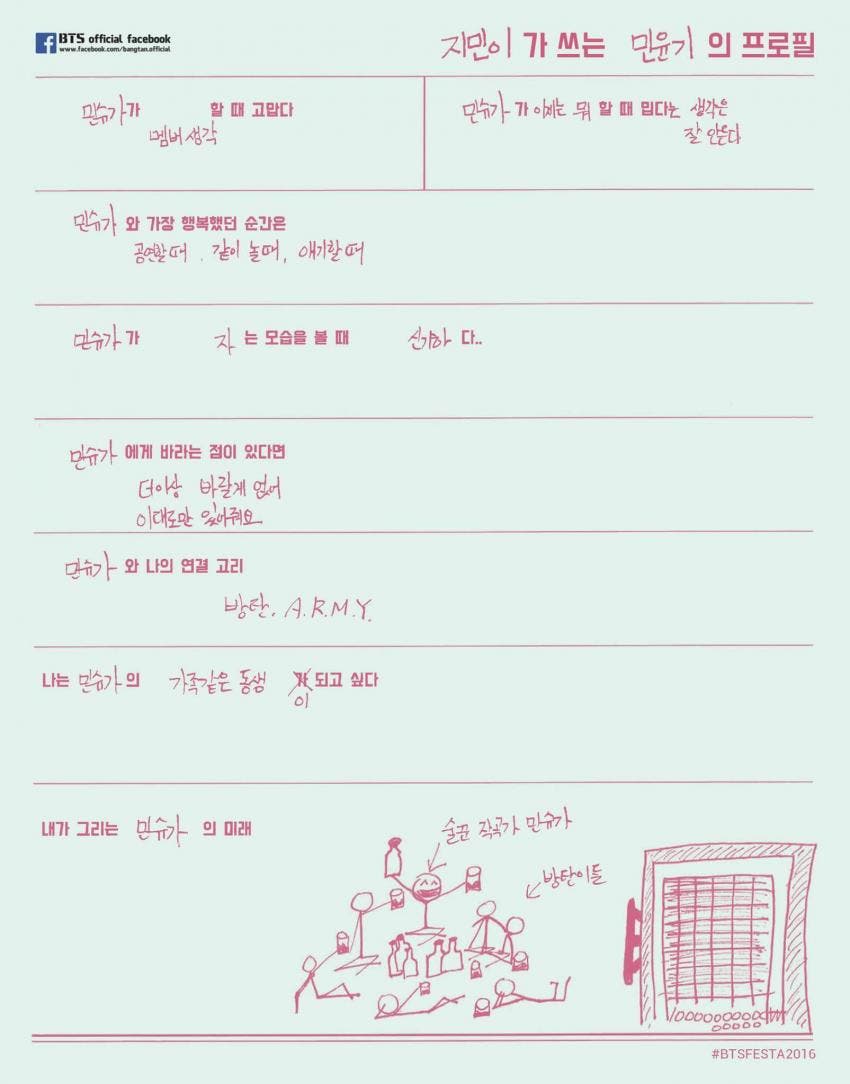 BTS official facebook
www.facebook.com/bangtan.official
지민이 가 쓰는 민윤기 의 프로필
민슈가가 할 때 고맙다
멤버 생각
민슈가 가 이제는 뭐 할 때 밉다는 생각은
잘 안든다
민슈가 와 가장 행복했던 순간은
공연할 때. 같이 놀때, 얘기할 때
민슈가가 자 는 모습을 볼 때 신기하 다..
민슈가 에게 바라는 점이 있다면
더이상 바랄게 없어
이대로만 있어줘요
민슈가 와 나의 연결 고리
방탄. A.R.M.Y.
나는 민슈가의 가족같은 동생 가 되고 싶다
이
내가 그리는 민슈가 의 미래
술꾼 작곡가 민슈가
방탄이들
#BTSFESTA2016